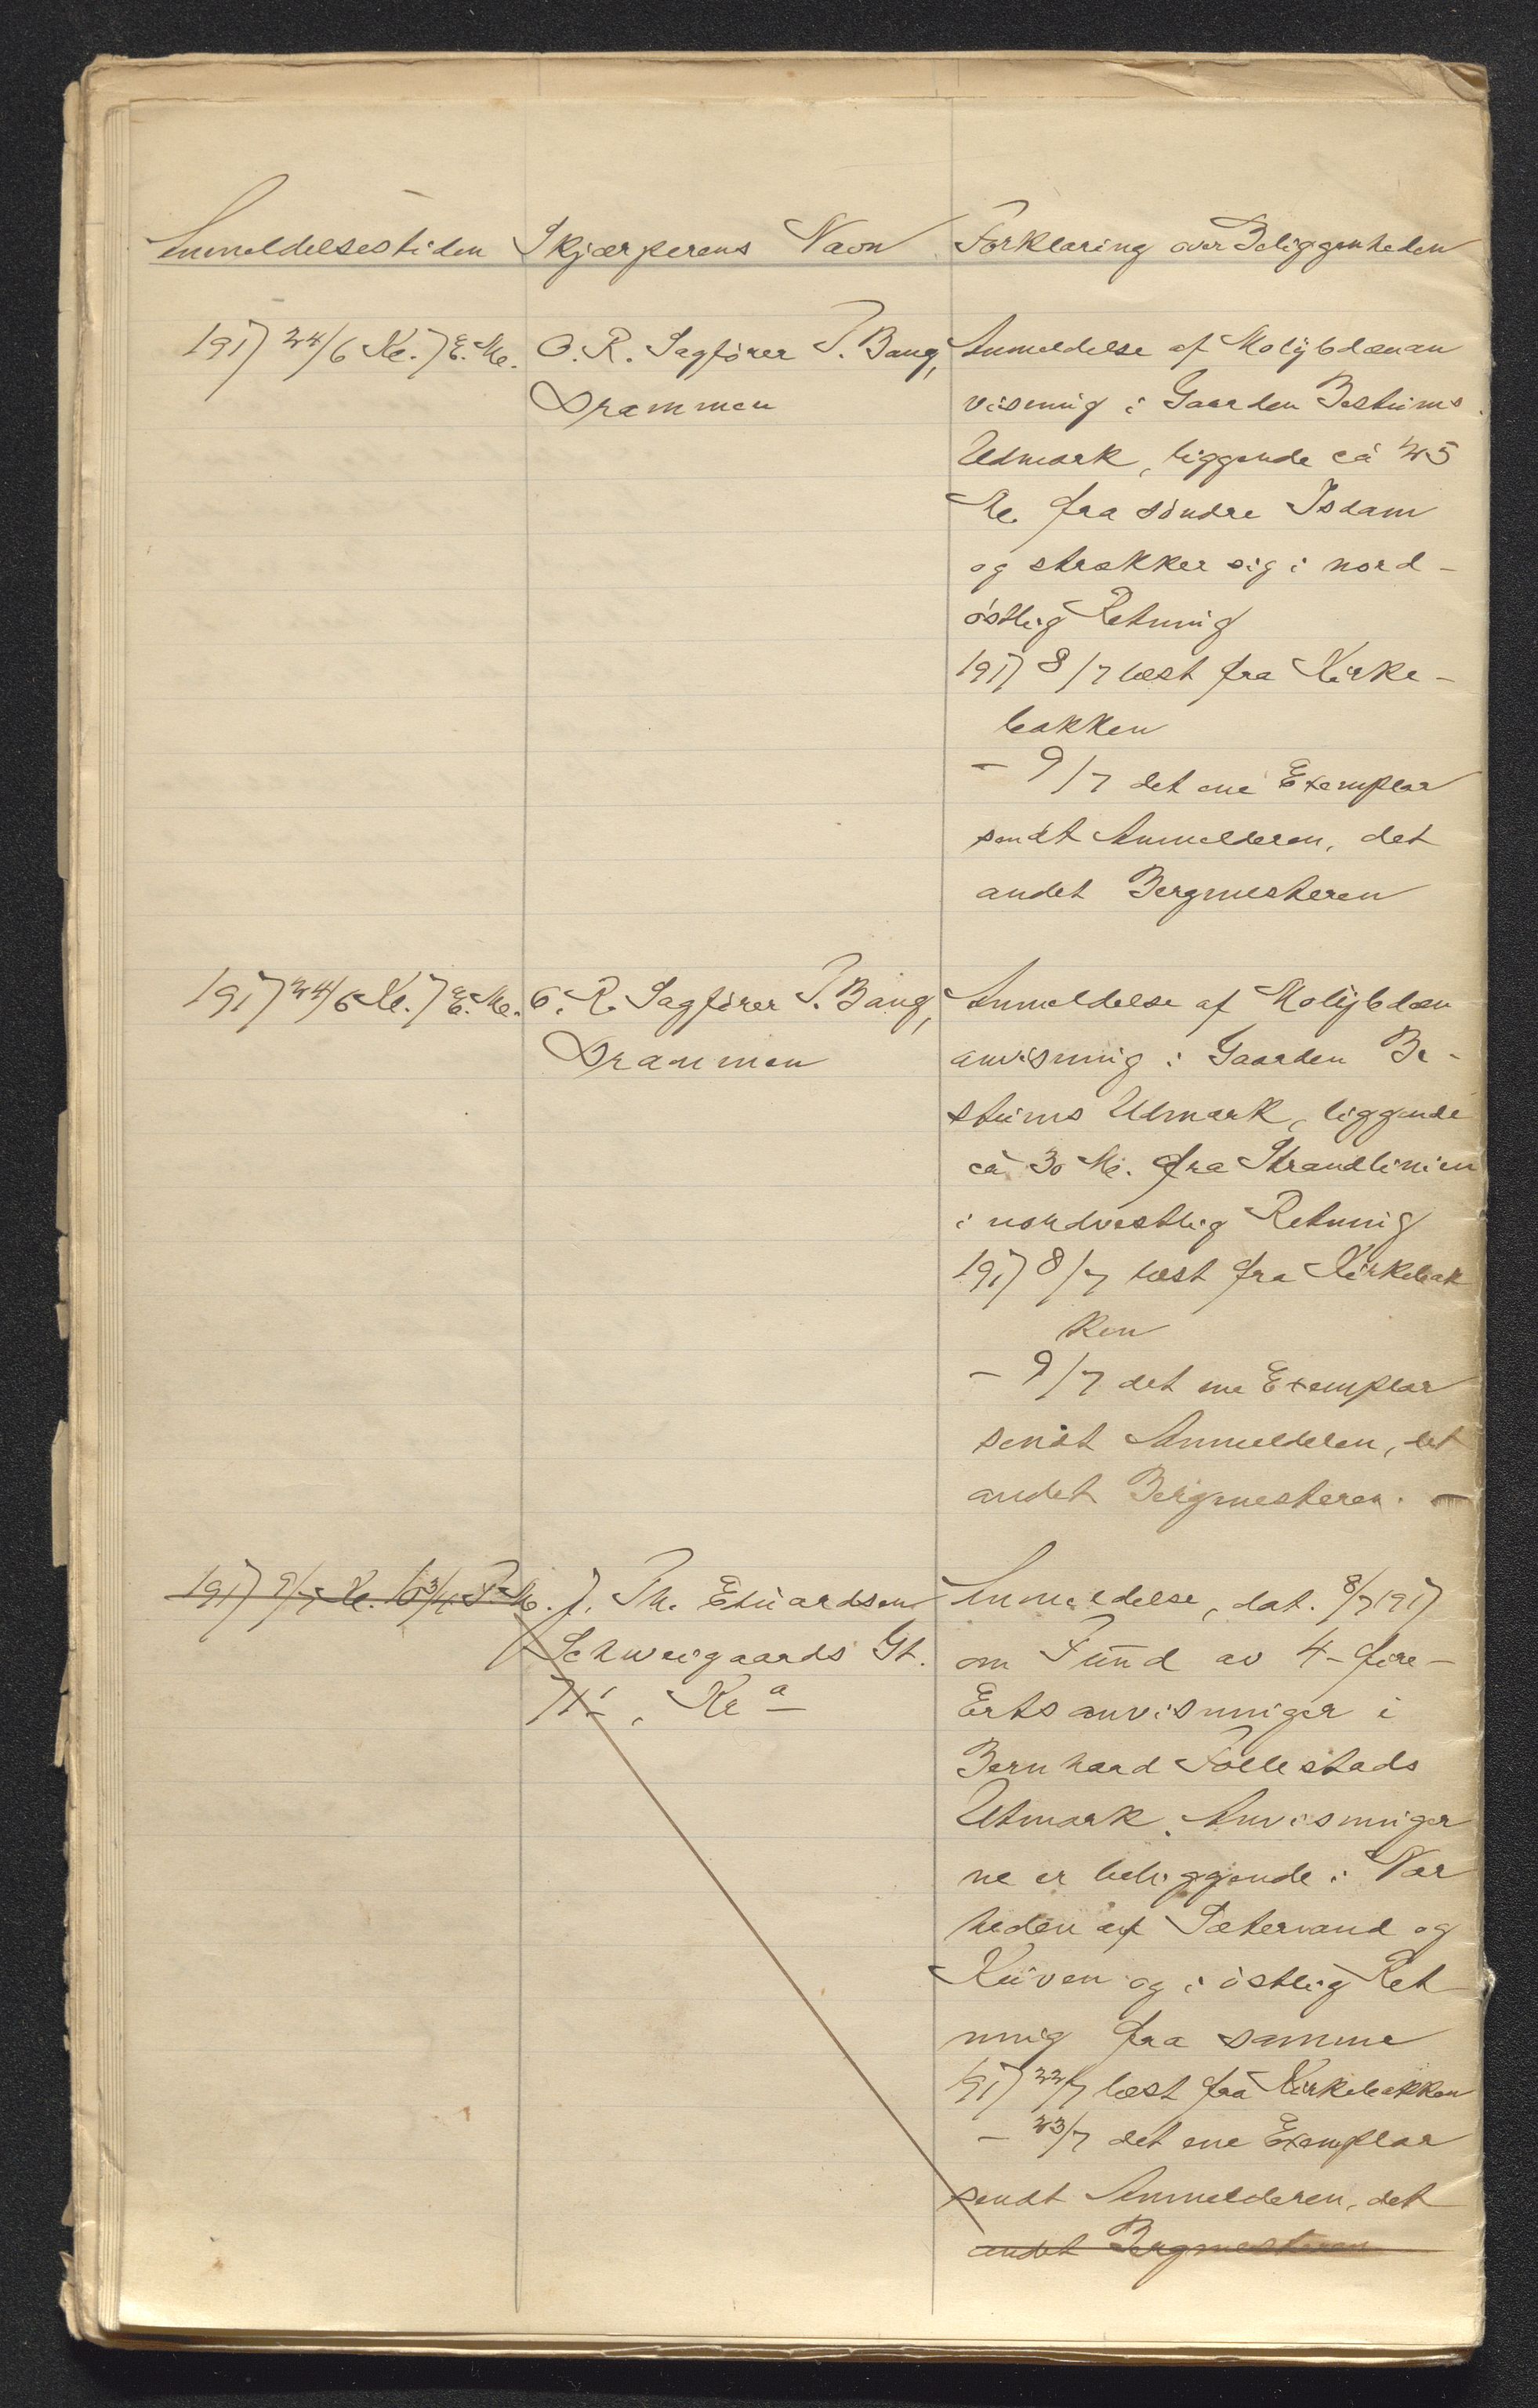 Anmeldelsestiden Skjærperens Navn Forklaring over Beliggenheden
1917 24/6 Kl. 7 E.M. O. R. Sagfører P. Bang, Anmeldelse af Molybdænan
Drammen visning i Gaarden Bestums
Udmark, liggende ca 25
M. fra søndre Isdam
og strækker sig i nord-
østlig Retning
1917 8/7 læst fra Kirke-
bakken
- 9/7 det ene Exemplar
sendt Anmelderen, det
andet Bergmesteren
1917 24/6 Kl. 7 E.M. O. R. Sagfører P. Bang, Anmeldelse af Molybdæn
Drammen anvisning i Gaarden Be-
stums Udmark, liggende
ca 30 M. fra Strandlinien
i nordvestlig Retning
1917 8/7 læst fra Kirkebak
ken
- 9/7 det ene Exemplar
sendt Anmelderen, det
andet Bergmesteren. -
1917 9/7 Kl. 10 3/4 F.M. J. Th. Eduardsen Anmeldelse, dat. 8/7 1917
Schweigaards Gt. om Fund av 4 - fire -
Kr a Ertsanvisninger i
Bernhard Follestads
Utmark. Anvisninger
ne er beliggende i Nær
heden af Sætervand og
Kuven og i østlig Ret
ning fra samme
1917 22/7 læst fra Kirkebakken
- 23/7 det ene Exemplar
sendt Anmelderen, det
andet Bergmesteren